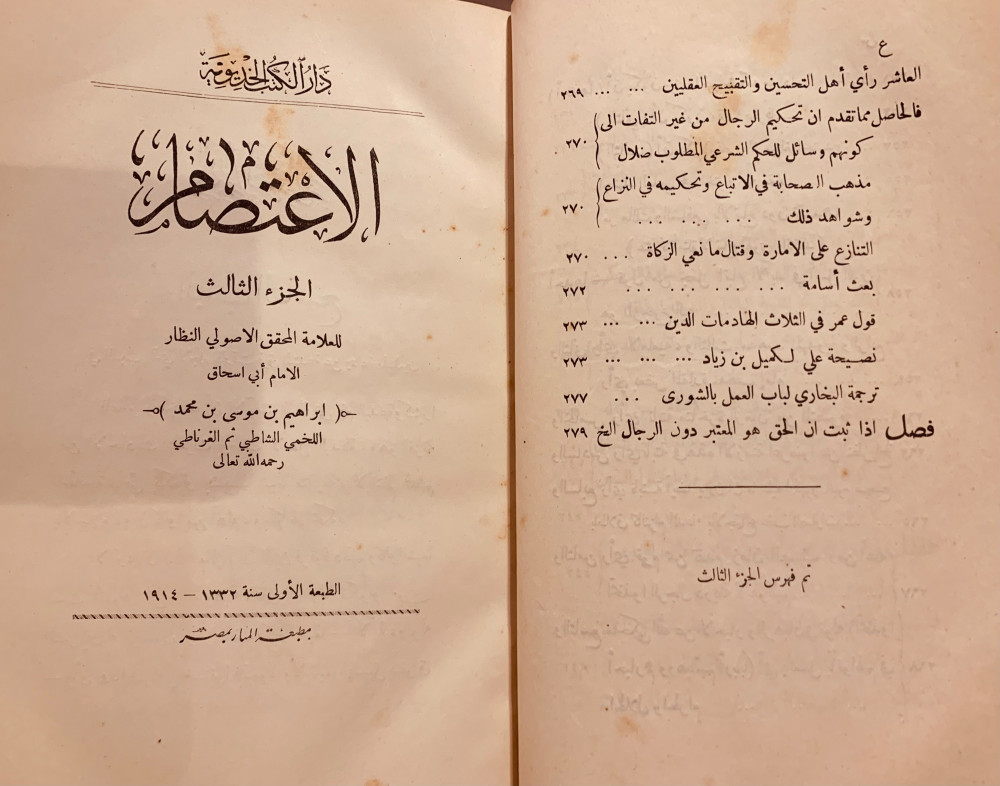 ع
العاشر رأي أهل التحسين والتقبيح العقليين ... ... ٢٦٩
فالحاصل مما تقدم ان تحكيم الرجال من غير التفات الى
كونهم وسائل للحكم الشرعي المطلوب ضلال ٢٧٠
مذهب الصحابة في الاتباع وتحكيمه في النزاع
وشواهد ذلك ... ... ... ... ٢٧٠
التنازع على الامارة وقتال ما نعي الزكاة ... ٢٧٠
بعث أسامة ... ... ... ... ... ٢٧٢
قول عمر في الثلاث الهادمات الدين ... ... ٢٧٣
نصيحة علي لكميل بن زياد ... ... ... ٢٧٣
ترجمة البخاري لباب العمل بالشورى ... ٢٧٧
فصل اذا ثبت ان الحق هو المعتبر دون الرجال الخ ٢٧٩
تم فهرس الجزء الثالث
دار الكتب الخديوية
الاعتصام
الجزء الثالث
للعلامة المحقق الاصولي النظار
الامام أبي اسحاق
( ابراهيم بن موسى بن محمد )
اللخمي الشاطبي ثم الغرناطي
رحمه الله تعالى
الطبعة الأولى سنة ١٣٣٢ - ١٩١٤
مطبعة المنار بمصر